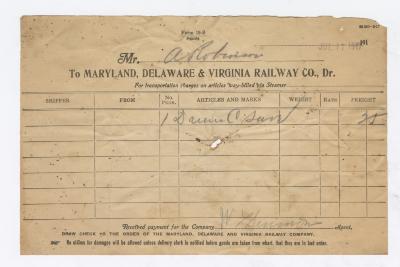 Form 18-B
Mr. A Robinson
JUL 17 191
To MARYLAND, DELAWARE & VIRGINIA RAILWAY CO., Dr.
For transportation charges on articles way-billed via Steamer
SHIPPER FROM No. Pkgs. ARTICLES AND MARKS WEIGHT RATE FREIGHT
1 25
Received payment for the Company Agent,
DRAW CHECK TO THE ORDER OF THE MARYLAND, DELAWARE AND VIRGINIA RAILWAY COMPANY.
No claims for damages will be allowed unless delivery clerk is notified before goods are taken from wharf, that they are in bad order.